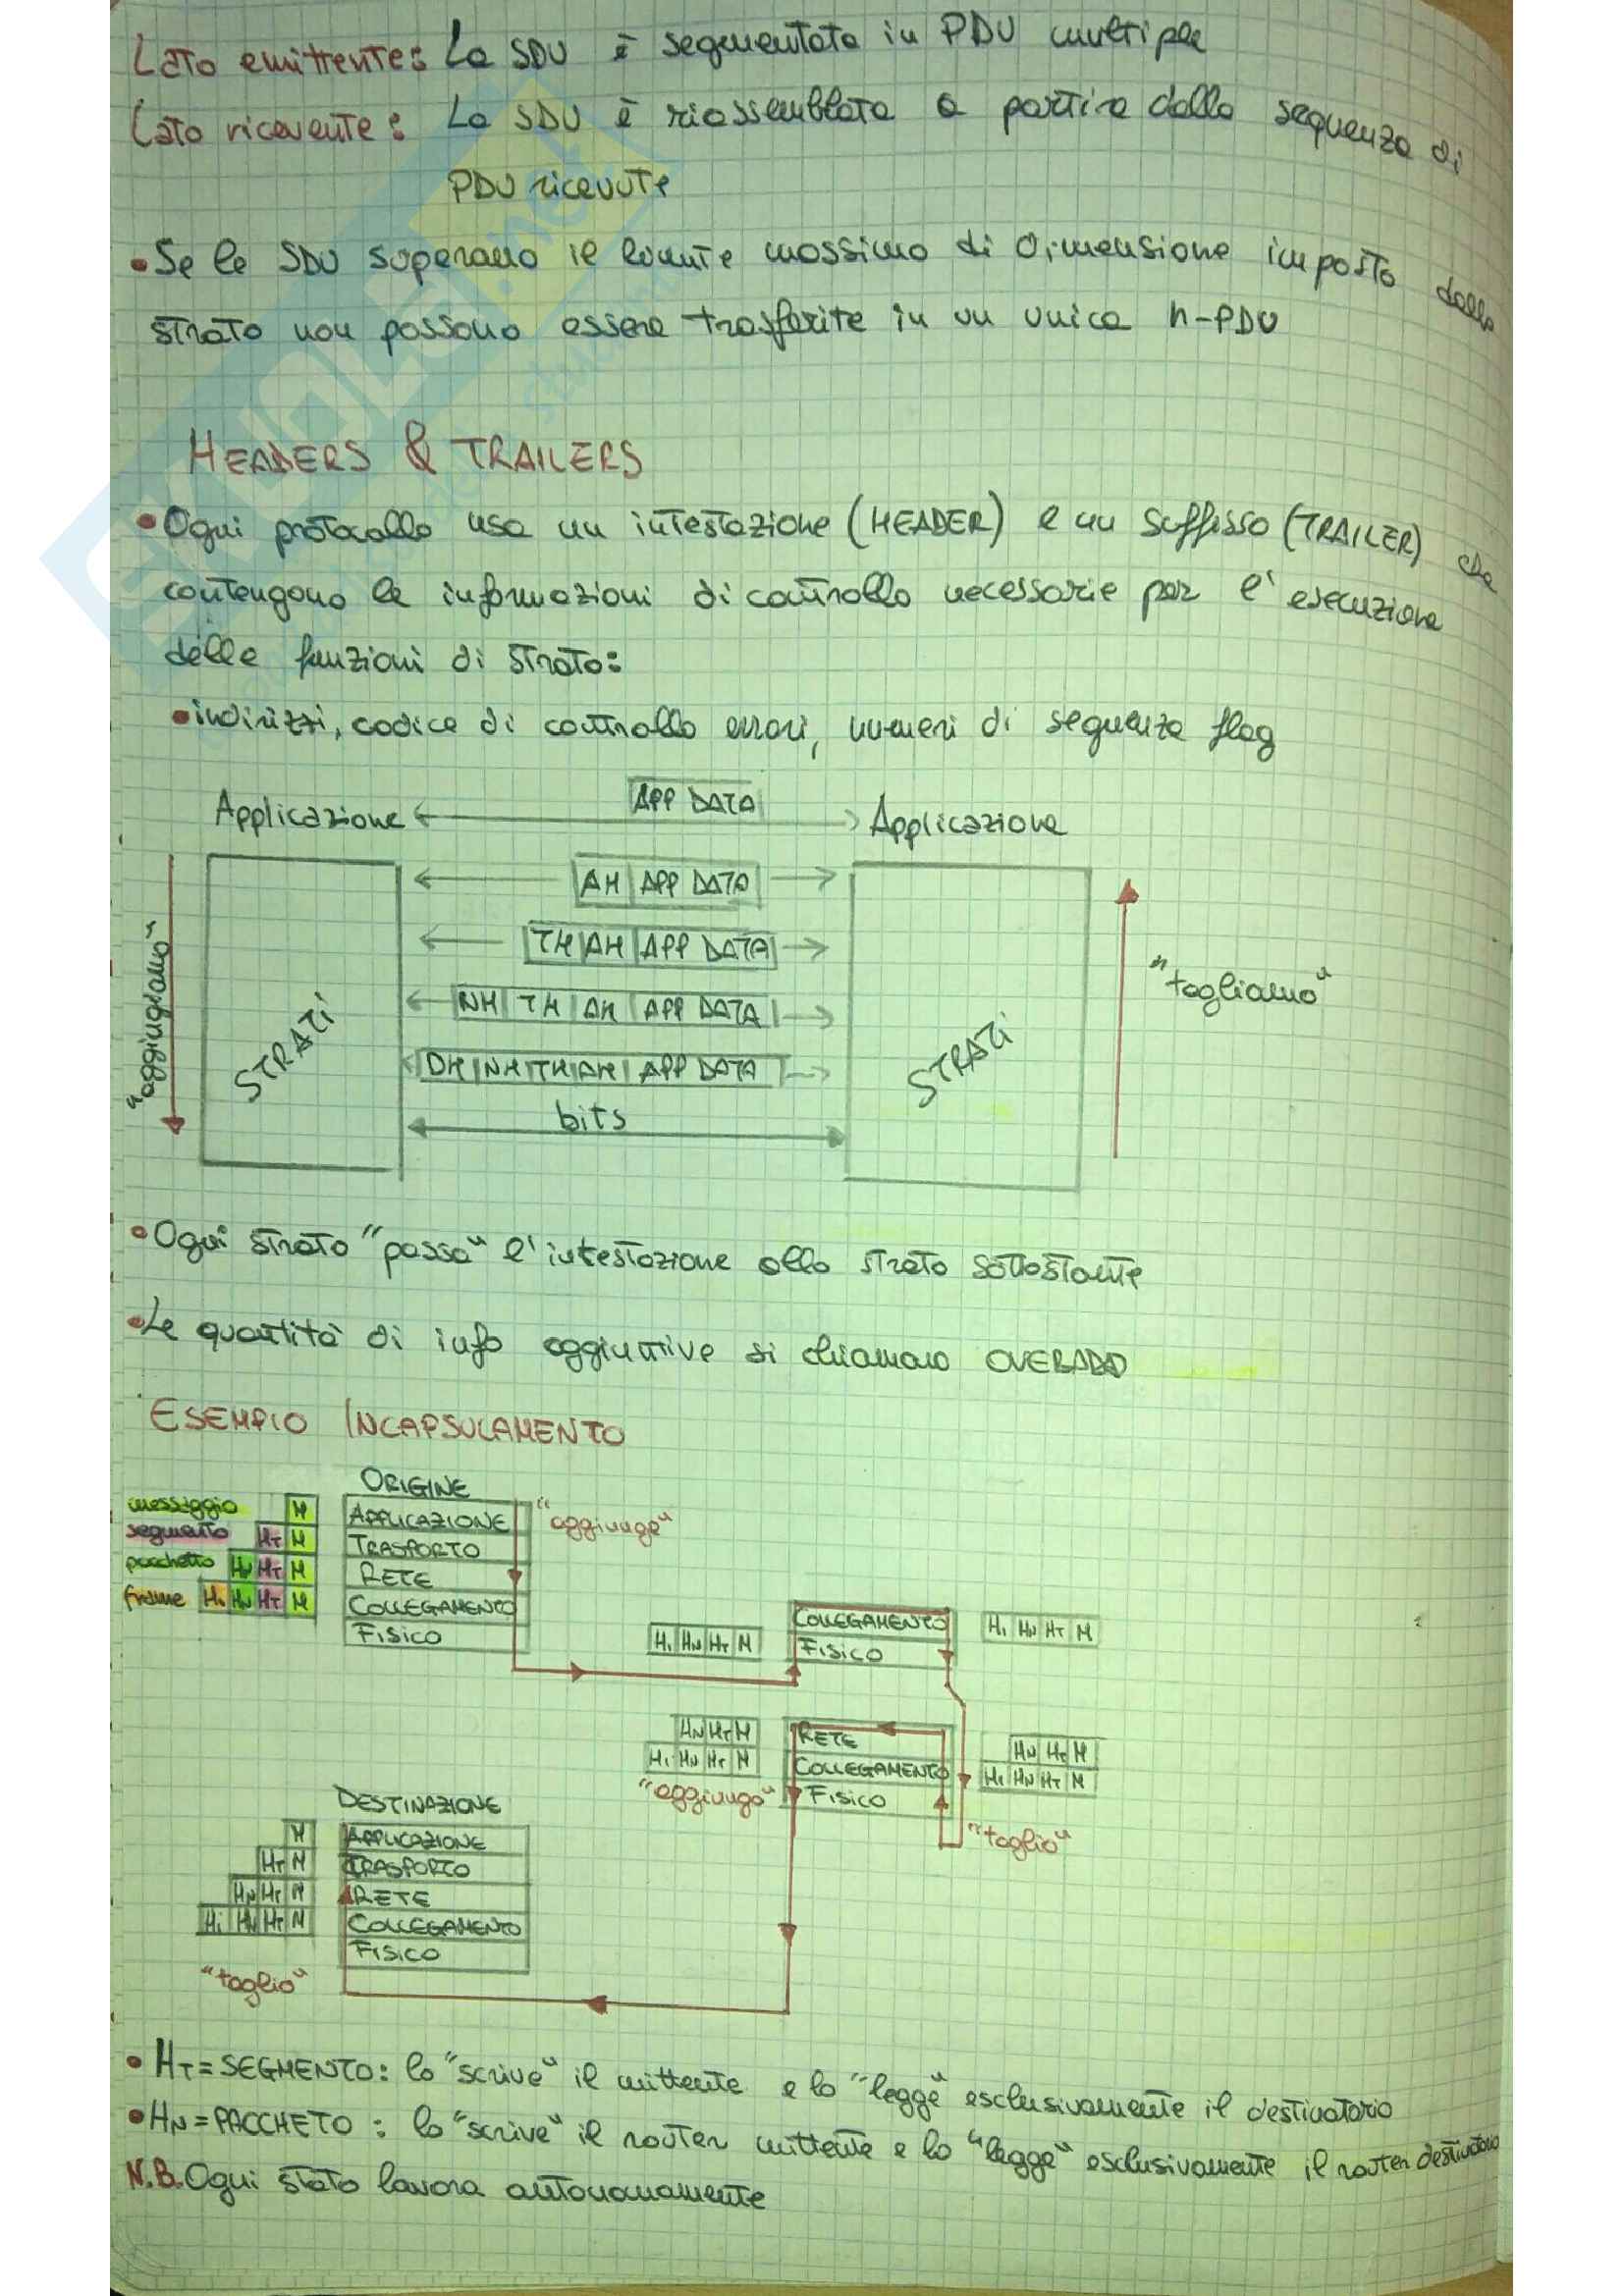 Lato emittente: La SDU è segmentata in PDU multiple
Lato ricevente: La SDU è riassemblata a partire dalla sequenza di
PDU ricevute
•Se le SDU superano il limite massimo di dimensione imposto dallo
strato non possono essere trasferite in un unica n-PDU
HEADERS & TRAILERS
•Ogni protocollo usa un intestazione (HEADER) e un suffisso (TRAILER) che
contengono le informazioni di controllo necessarie per l'esecuzione
delle funzioni di strato:
•indirizzi, codice di controllo errori, numeri di sequenza flag
APP DATA
Applicazione Applicazione
AH APP DATA
TH AH APP DATA
"aggiungiamo" "togliamo"
NH TH AH APP DATA
STRATI STRATI
DH NH TH AH APP DATA
bits
•Ogni strato "passa" l'intestazione allo strato sottostante
•Le quantità di info aggiuntive si chiamano OVERADD
ESEMPIO INCAPSULAMENTO
ORIGINE
messaggio M APPLICAZIONE "aggiunge"
segmento HT M TRASPORTO
pacchetto HN HT M RETE
frame H1 HN HT M COLLEGAMENTO
FISICO
H1 HN HT M COLLEGAMENTO H1 HN HT M
FISICO
HN HT M RETE HN HT M
H1 HN HT M COLLEGAMENTO H1 HN HT M
"aggiungo" FISICO
"toglio"
DESTINAZIONE
M APPLICAZIONE
HT M TRASPORTO
HN HT M RETE
H1 HN HT M COLLEGAMENTO
FISICO
"toglio"
• HT=SEGMENTO: lo "scrive" il mittente e lo "legge" esclusivamente il destinatario
•HN=PACCHETO: lo "scrive" il router mittente e lo "legge" esclusivamente il router destinatario
N.B. Ogni stato lavora autonomamente